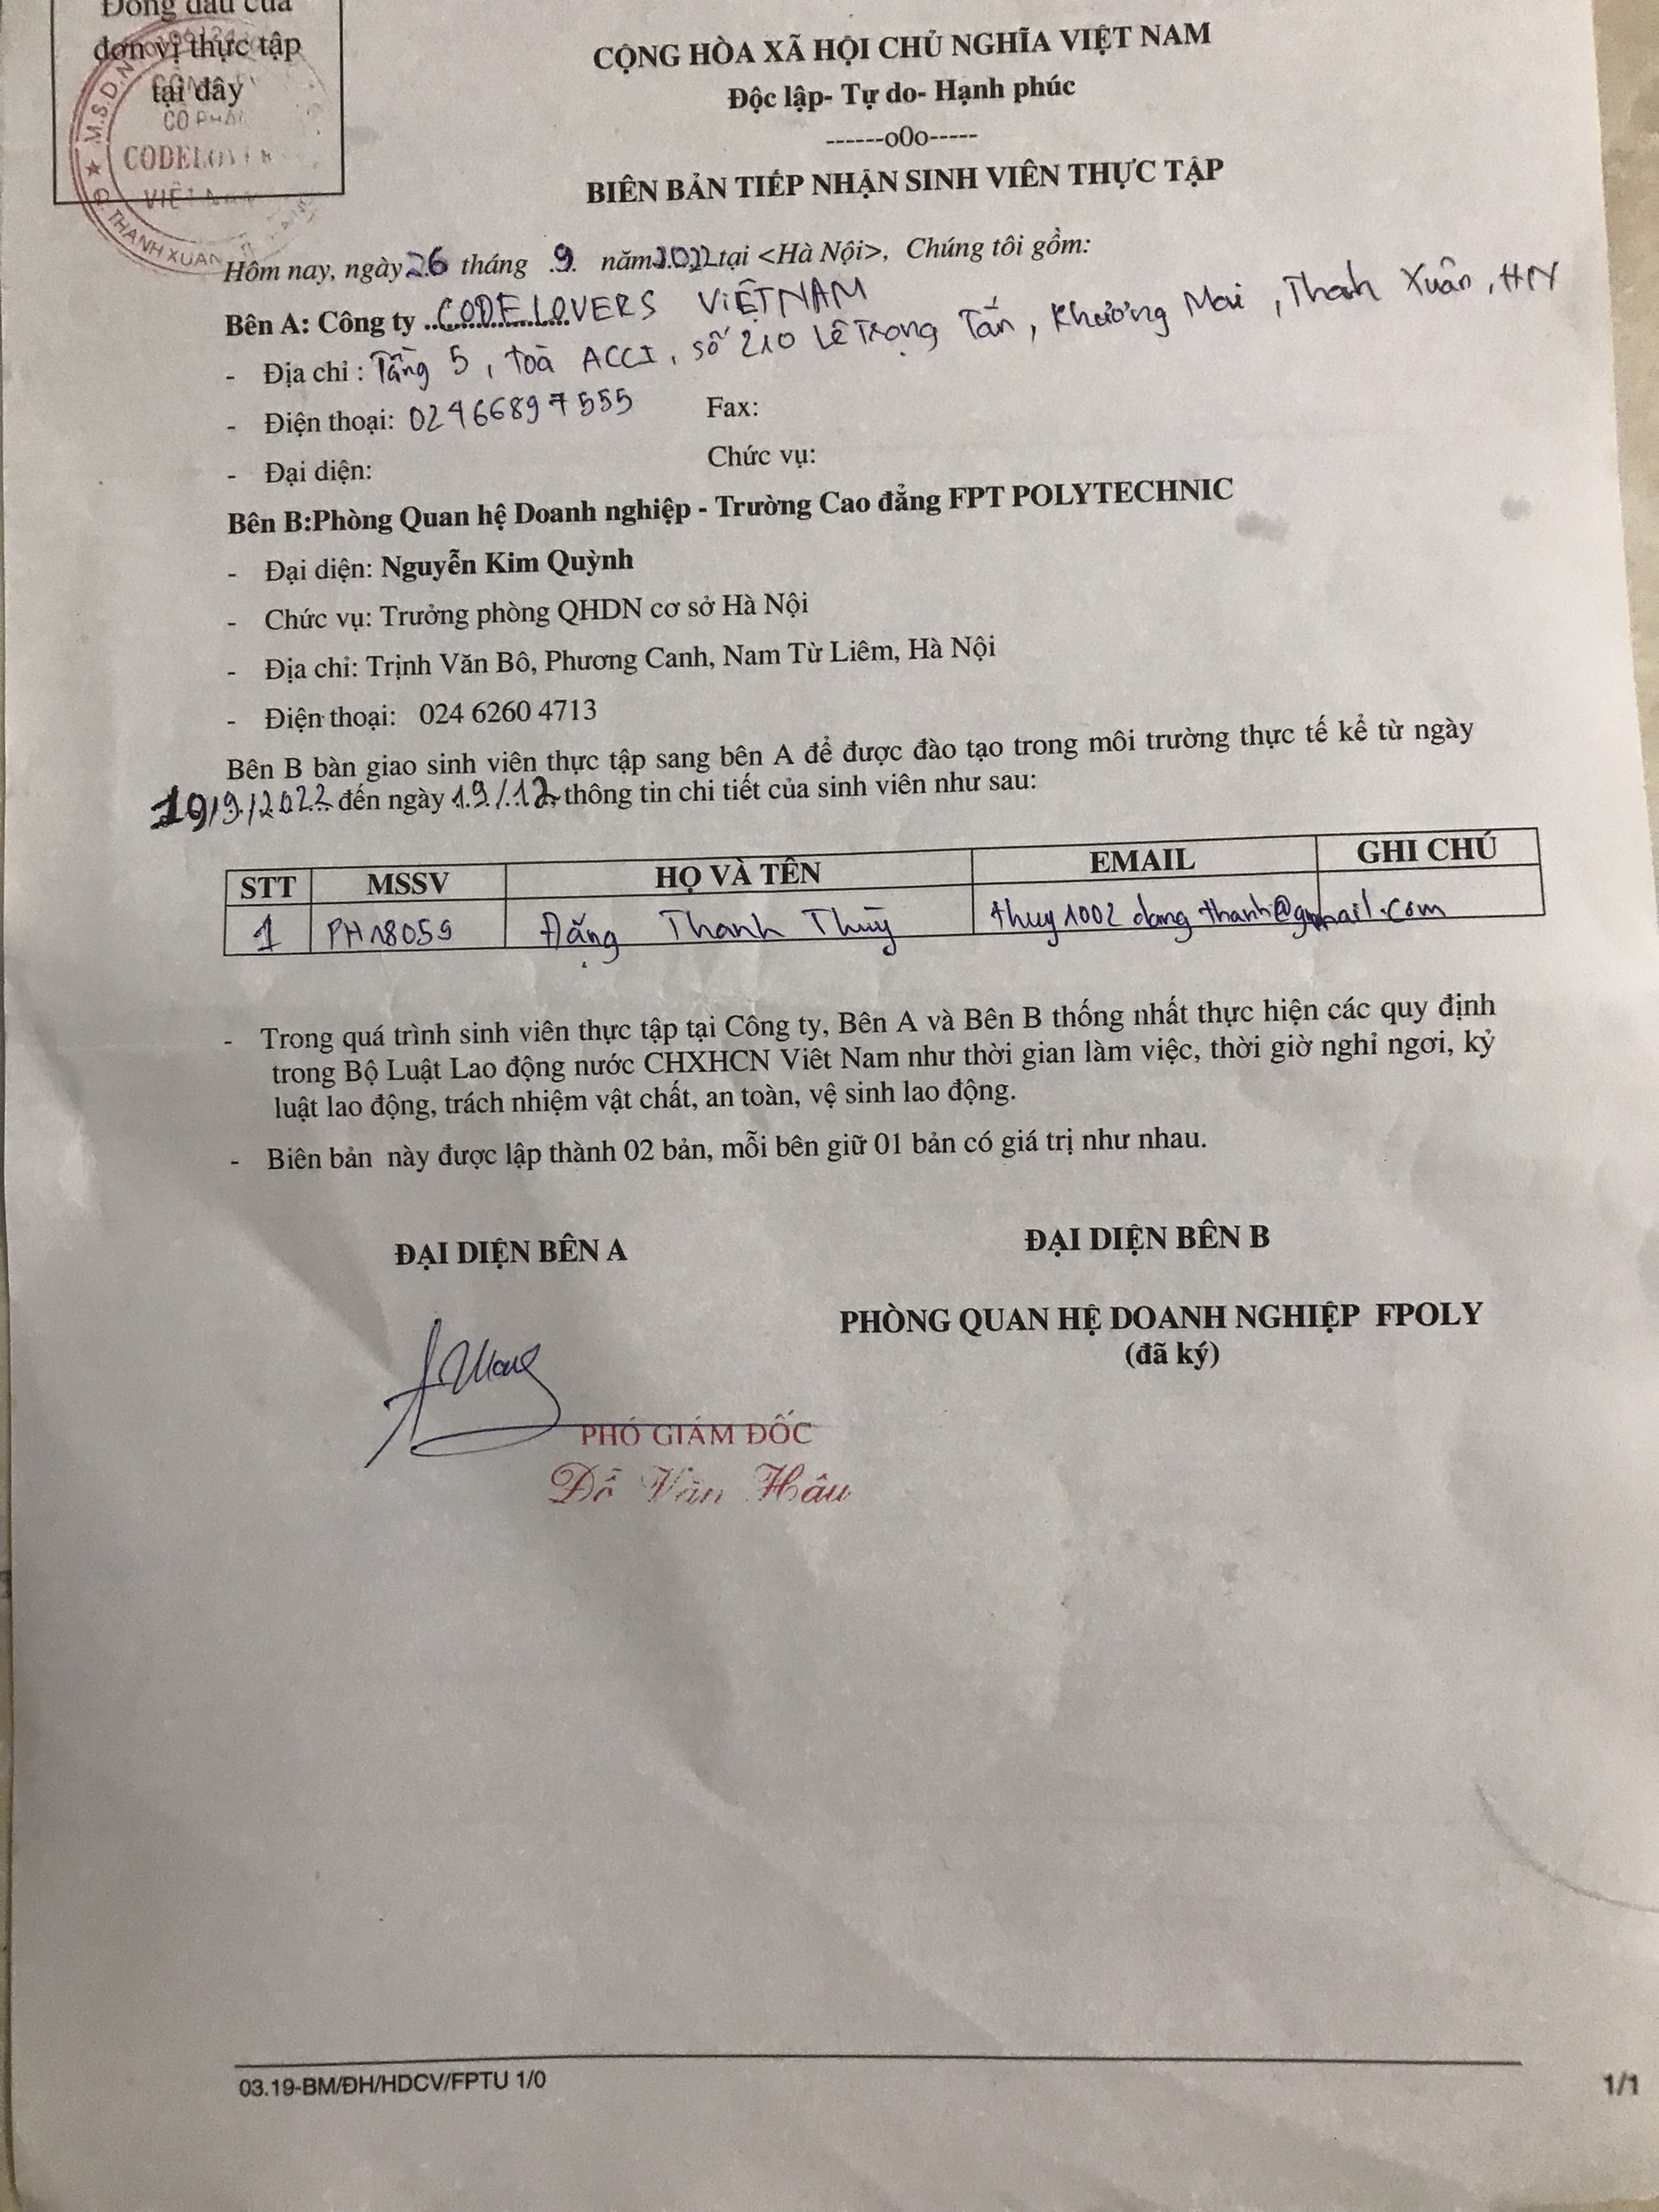 Đóng dấu của
đơn vị thực tập
tại đây
M.S.D.N
CỔ PHẦ
CODELOVER
VIỆT NAM
THANH XUÂN
CỘNG HÒA XÃ HỘI CHỦ NGHĨA VIỆT NAM
Độc lập- Tự do- Hạnh phúc
------o0o-----
BIÊN BẢN TIẾP NHẬN SINH VIÊN THỰC TẬP
Hôm nay, ngày 26 tháng .9. năm 2022 tại <Hà Nội>, Chúng tôi gồm:
Bên A: Công ty CODELOVERS VIỆT NAM
- Địa chỉ : Tầng 5, toà ACCI, số 210 Lê Trọng Tấn, Khương Mai, Thanh Xuân, HN
- Điện thoại: 02466897555 Fax:
- Đại diện: Chức vụ:
Bên B:Phòng Quan hệ Doanh nghiệp - Trường Cao đẳng FPT POLYTECHNIC
- Đại diện: Nguyễn Kim Quỳnh
- Chức vụ: Trưởng phòng QHDN cơ sở Hà Nội
- Địa chỉ: Trịnh Văn Bô, Phương Canh, Nam Từ Liêm, Hà Nội
- Điện thoại: 024 6260 4713
Bên B bàn giao sinh viên thực tập sang bên A để được đào tạo trong môi trường thực tế kể từ ngày
19/9/2022 đến ngày 19/12, thông tin chi tiết của sinh viên như sau:
STT MSSV HỌ VÀ TÊN EMAIL GHI CHÚ
1 PH18059 Đặng Thanh Thùy thuy1002dangthanh@gmail.com
- Trong quá trình sinh viên thực tập tại Công ty, Bên A và Bên B thống nhất thực hiện các quy định
trong Bộ Luật Lao động nước CHXHCN Viêt Nam như thời gian làm việc, thời giờ nghỉ ngơi, kỷ
luật lao động, trách nhiệm vật chất, an toàn, vệ sinh lao động.
- Biên bản này được lập thành 02 bản, mỗi bên giữ 01 bản có giá trị như nhau.
ĐẠI DIỆN BÊN A ĐẠI DIỆN BÊN B
PHÒNG QUAN HỆ DOANH NGHIỆP FPOLY
(đã ký)
PHÓ GIÁM ĐỐC
Đỗ Văn Hâu
03.19-BM/ĐH/HDCV/FPTU 1/0 1/1